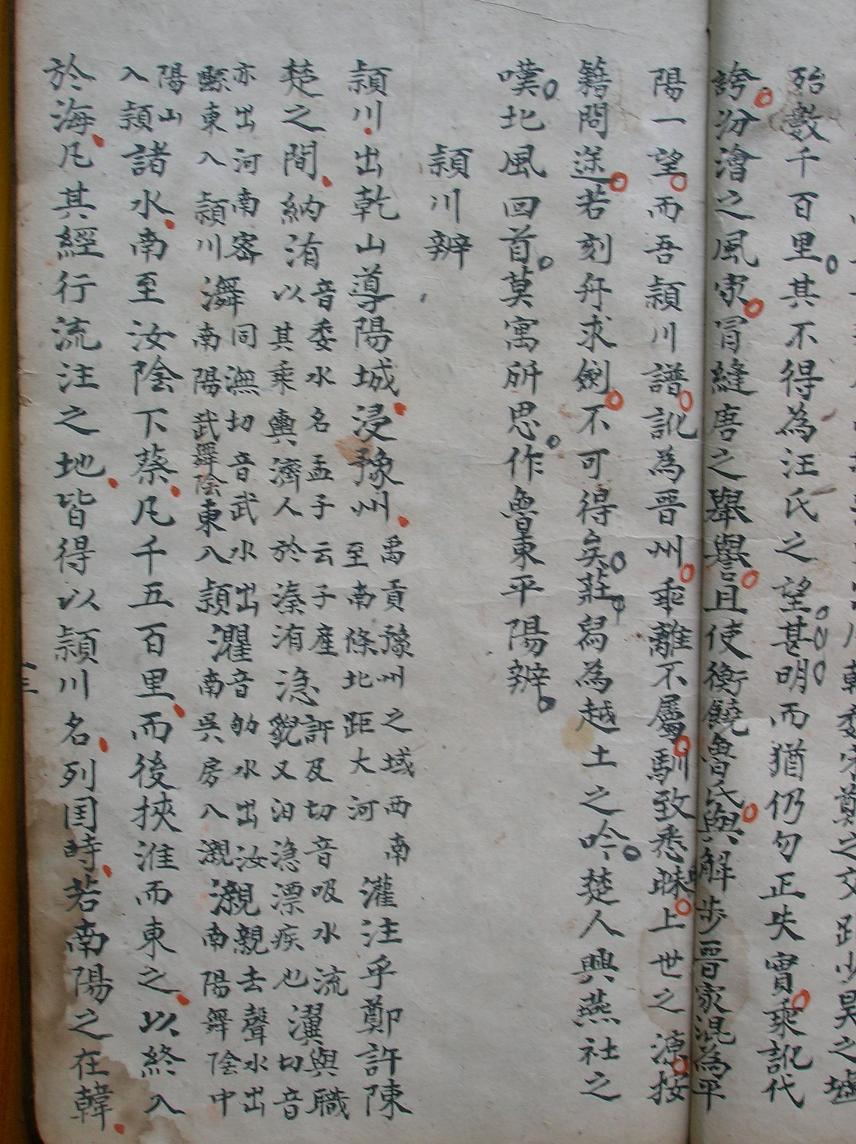 殆數千百里其不得為汪氏之望甚明而猶仍勿正失實乘訛代
誇汾澮之風家冒縫唐之舉譽且使衡饒魯氏與解步晉家混為平
陽一望而吾頴川譜訛為晉州乖離不屬馴致悉昧上世之源按
籍問逆若刻舟求劍不可得矣莊舄為越土之吟楚人興燕社之
嘆北風回首莫寓所思作魯東平陽辨
頴川辨
頴川出乾山導陽城浸豫州禹貢豫州之域西南至南條北距大河灌注乎鄭許陳
楚之間納洧音委水名孟子云子産以其乘輿濟人於溱洧㴔許及切音吸水流㴔貎又汩㴔漂疾也瀷與職切音
亦出河南密縣東入頴川潕同潕切音武水出南陽武舞陰東入頴灈音劬水出汝南吳房入瀙瀙親去聲水出南陽舞陰中
陽山入頴諸水南至汝陰下蔡凡千五百里而後挾淮而東之以終入
於海凡其經行流注之地皆得以頴川名列國時若南陽之在韓